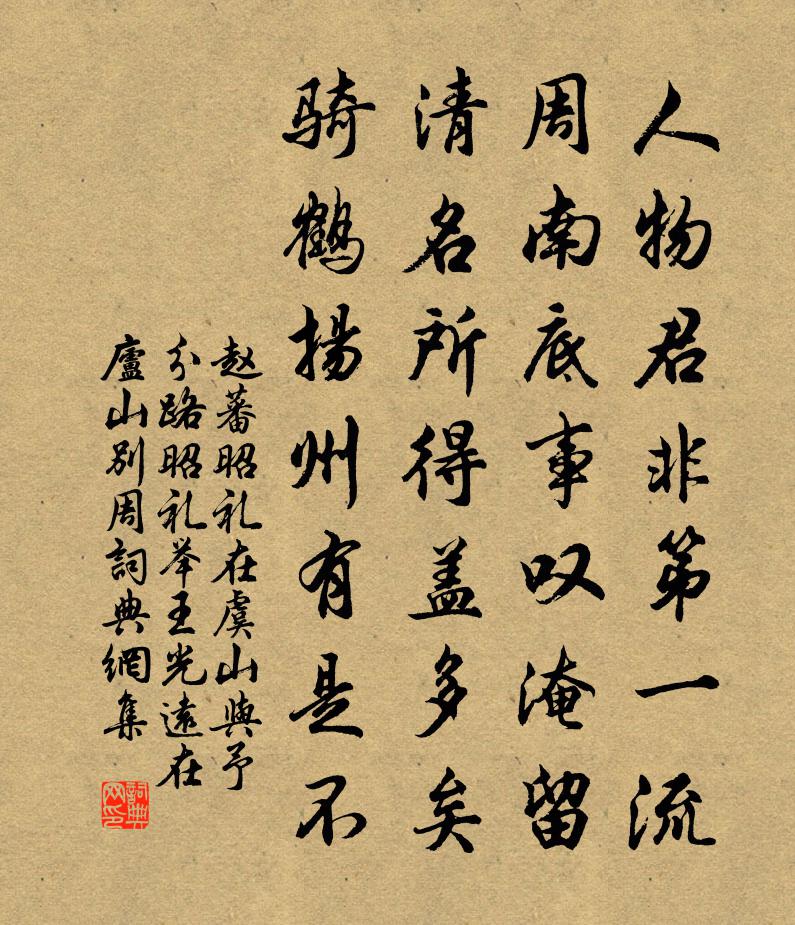 人物君非第一流
周南底事叹淹留
清名所得盖多矣
骑鹤揚州有是不
赵蕃昭礼在虞山與予
分路昭礼举王光遠在
廬山别周詞典網集
詞典网印